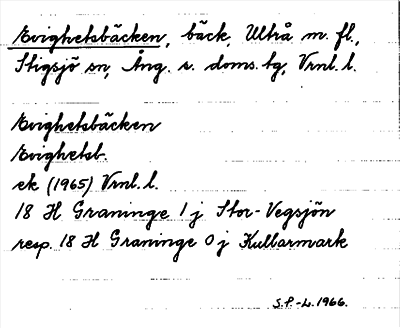 Evighetsbäcken, bäck, Ultrå m. fl.,
Stigsjö sn, Ång. s. doms. tg, Vrnl. l.
Evighetsbäcken
Evighetsb.
ek (1965) Vrnl. l.
18 H Graninge 1 j Stor-Vegsjön
resp. 18 H Graninge 0 j Kullarmark
S.P.-L. 1966.